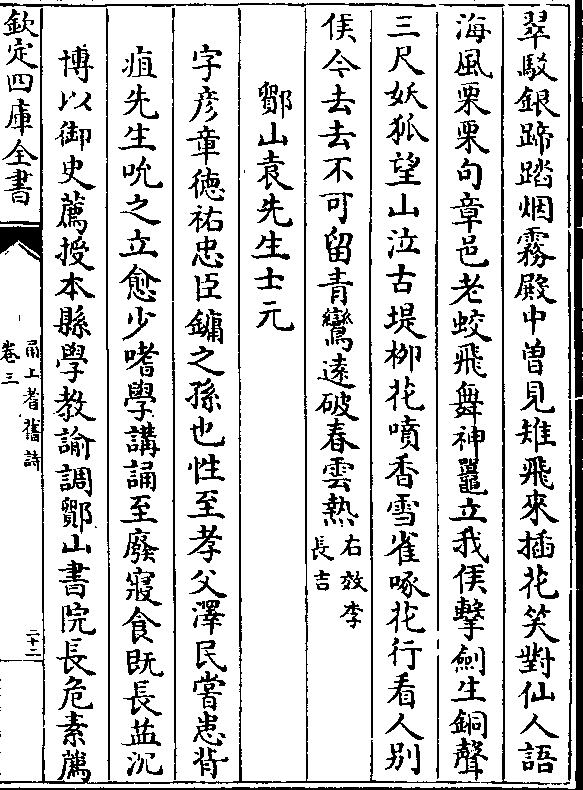 翠駁銀蹄踏烟霧殿中曽見雉飛來插花笑對仙人語
海風栗栗句章邑老蛟飛舞神鼉立我侯擊劍生銅聲
三尺妖狐望山泣古堤柳花噴香雪雀啄花行看人别
侯今去去不可留青鸞遠破春雲熱右效李
長吉
鄮山袁先生士元
字彦章德祐忠臣鏞之孫也性至孝父澤民嘗患背
疽先生吮之立愈少嗜學講誦至廢寢食既長益沉
博以御史薦授本縣學教諭調鄮山書院長危素薦
欽定四庫全書
甬上耆舊詩
卷三
二十二